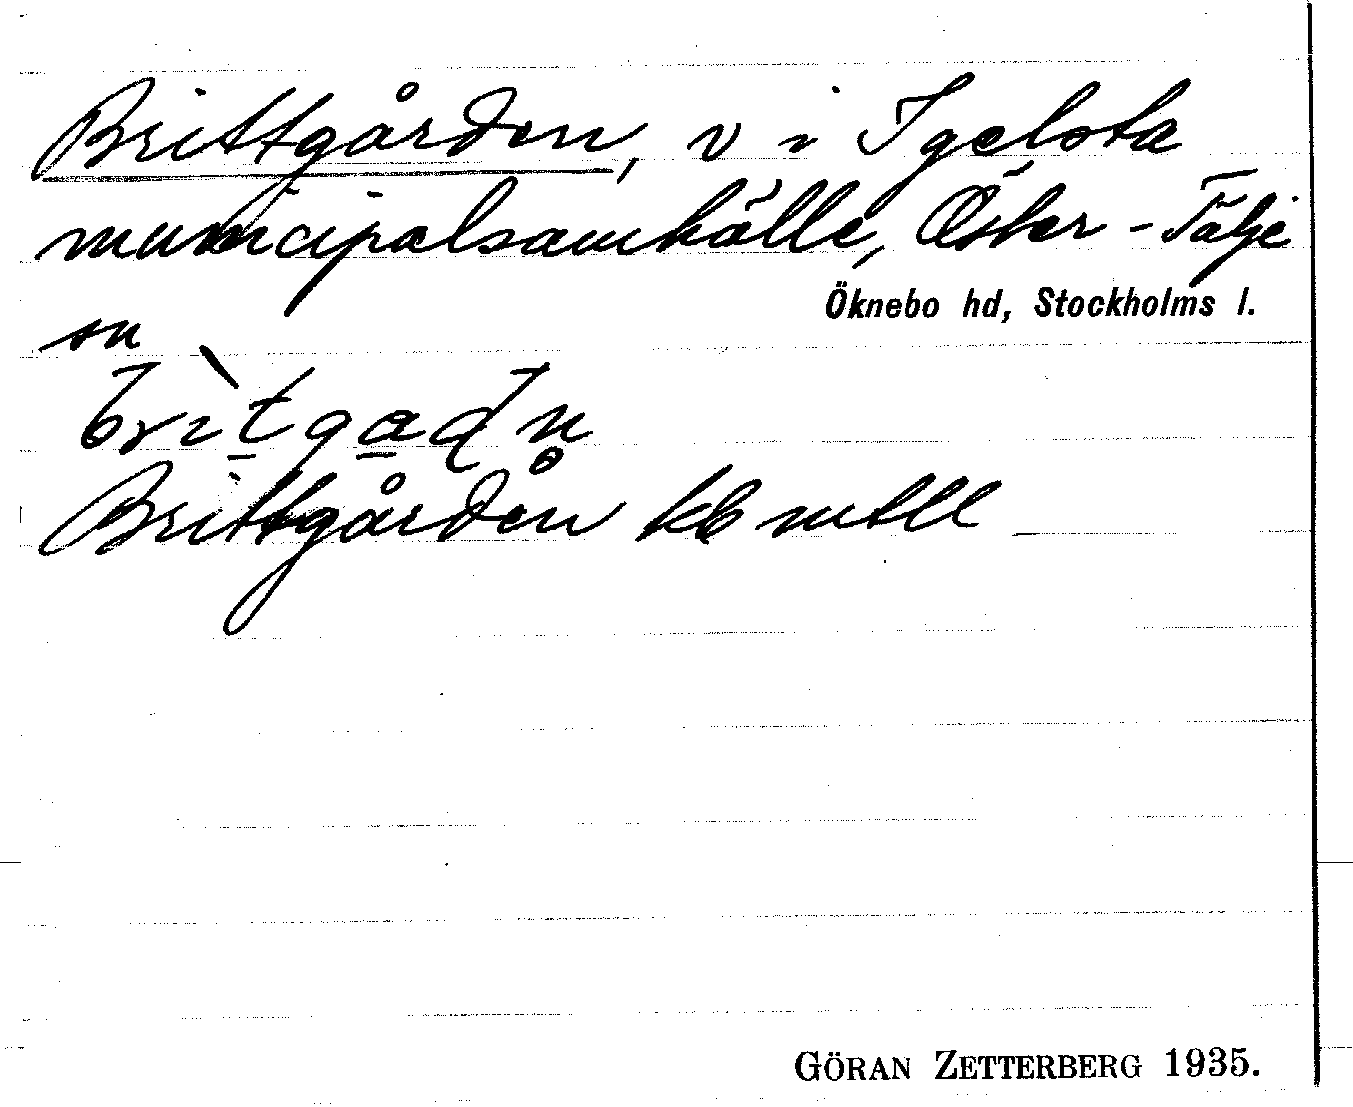 Brittgården, v i Igelsta
municipalsamhälle, Öster-Tälje
Öknebo hd, Stockholms l.
sn
brìtgadn̥
Brittgården kb mtll
GÖRAN ZETTERBERG 1935.